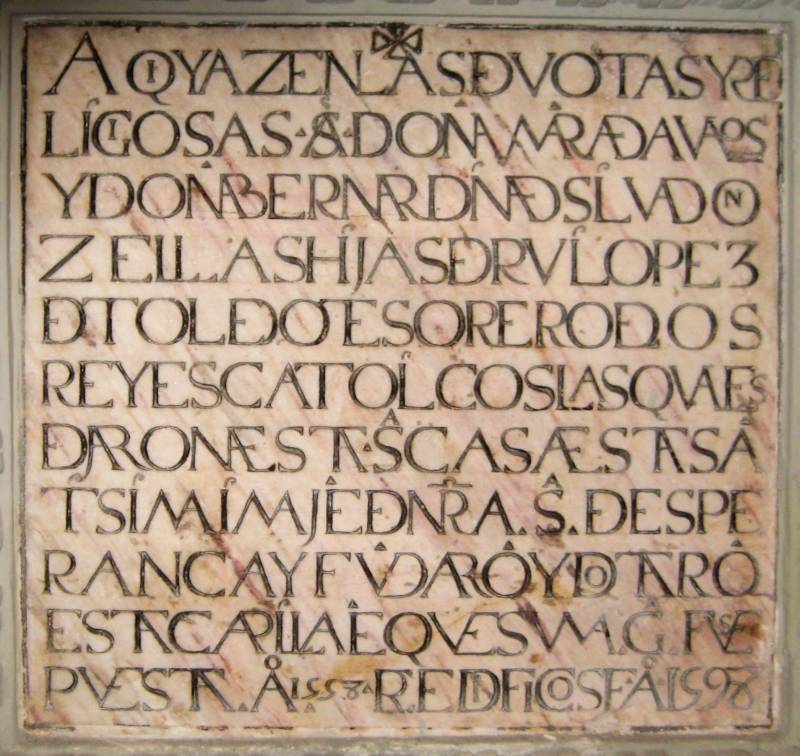 AQI YAZEN LAS DEVOTAS Y RE
LIGIOSAS SAS DOÑA MARIA DAVALOS
Y DOÑA BERNARDINA D SILVA DON
ZELLAS HIJAS DE RVI LOPE3
DE TOLEDO TESORERO DE LOS
REYES CATOLICOS LAS QVALES
DEJARON ESTAS CASAS A ESTA SÃ
TISIMA IMAJÊ DE NRA. Sª. DE ESPE
RANCA Y FVDARÔ Y DOTARÔ
ESTA CAPILLA Ê QVE SV MAG. FVE
PVESTA. AÑO 1558. REEDIFICOSE AÑO 1598